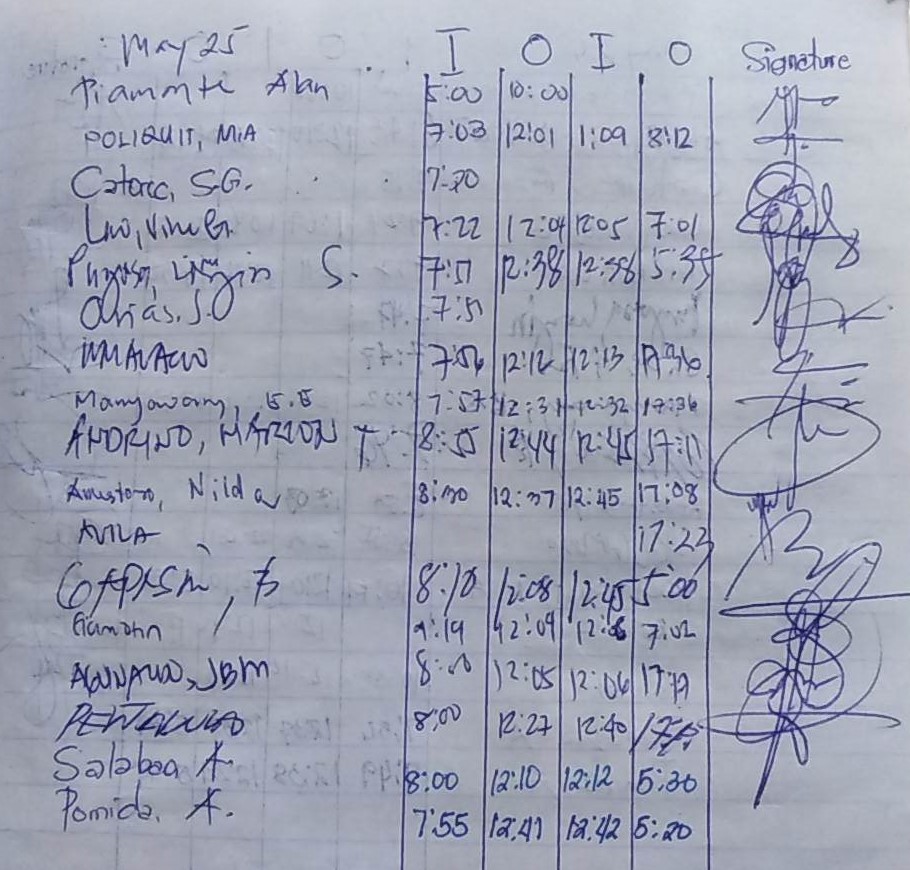 May 25 I O I O Signature
Piamonte Alan 5:00 10:00
POLIQUIT, MA 7:03 12:01 1:09 8:12
Catoric, S.G. 7:20
7:22 12:04 12:05 7:01
S. 7:51 12:38 12:38 5:35
Arias, J.O 7:51
7:56 12:12 12:13
Manyawang, E.E 7:57 12:31 12:32 17:36
ANDRINO, MARLON T 8:55 12:44 12:45 17:11
Nilda 8:30 12:37 12:45 17:08
AVILA 17:23
8:10 12:08 12:45 5:00
Gamonn 12:09 7:02
JBM 8:00 12:05 12:06
8:00 12:27 12:40
Salaboa A. 8:00 12:10 12:12 5:30
Pomida, A. 7:55 12:41 12:42 5:20